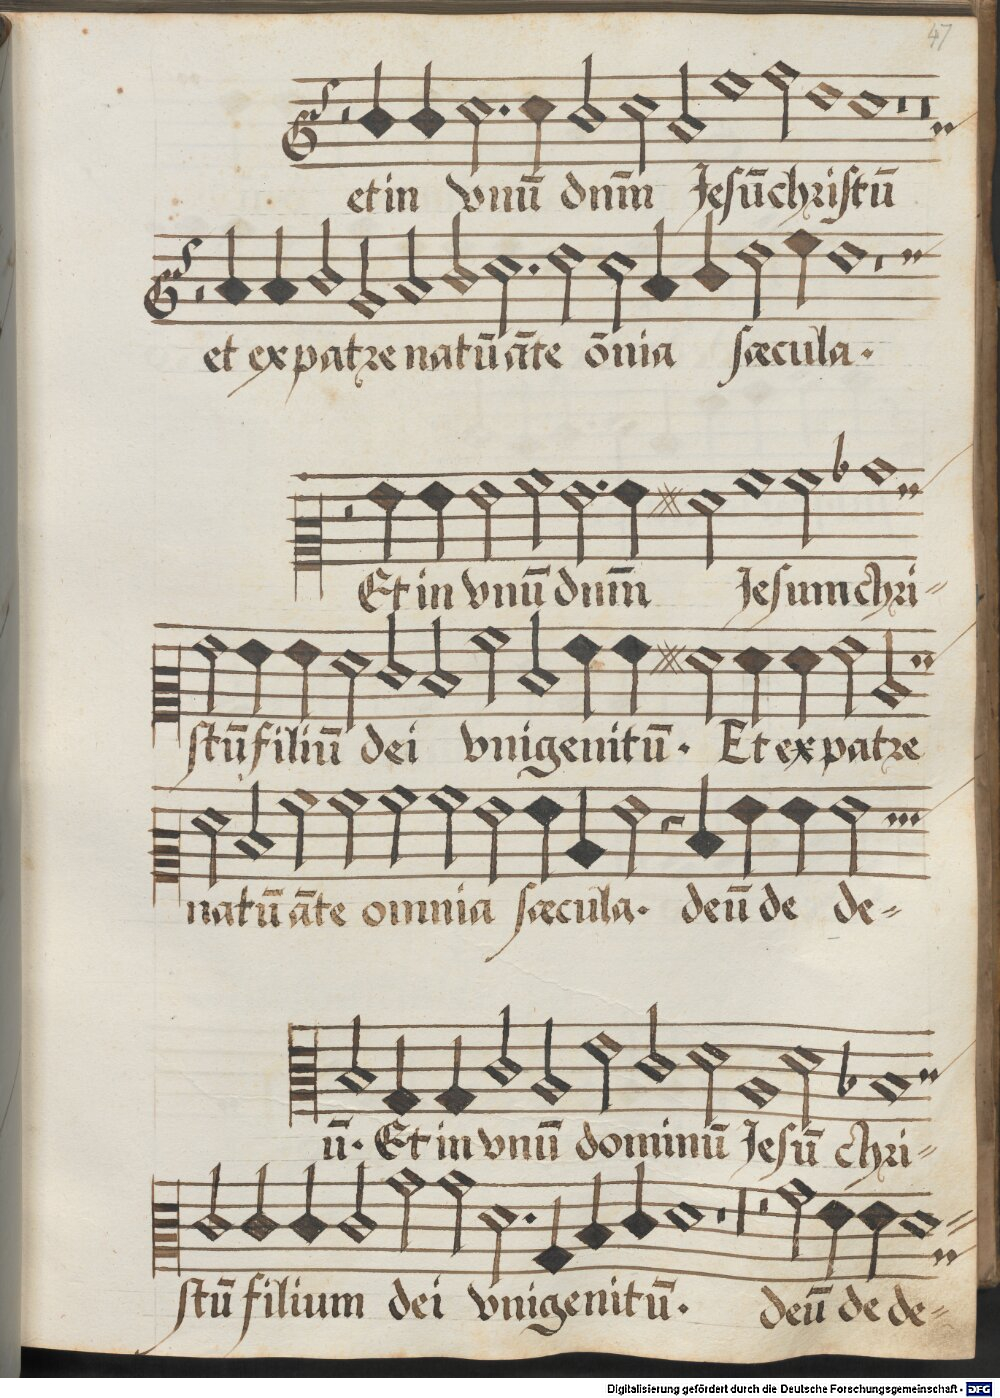 47
et in vnū dnm̄ Jesū christū
et ex patre natū āte ōnia sæcula.
Et in vnū dnm̄ Jesum chri=
stū filiū dei vnigenitū. Et ex patre
natū āte omnia sæcula. deū de de=
ū. Et in vnū dominū Jesū chri=
stū filium dei vnigenitū. deū de de=
Digitalisierung gefördert durch die Deutsche Forschungsgemeinschaft - DFG